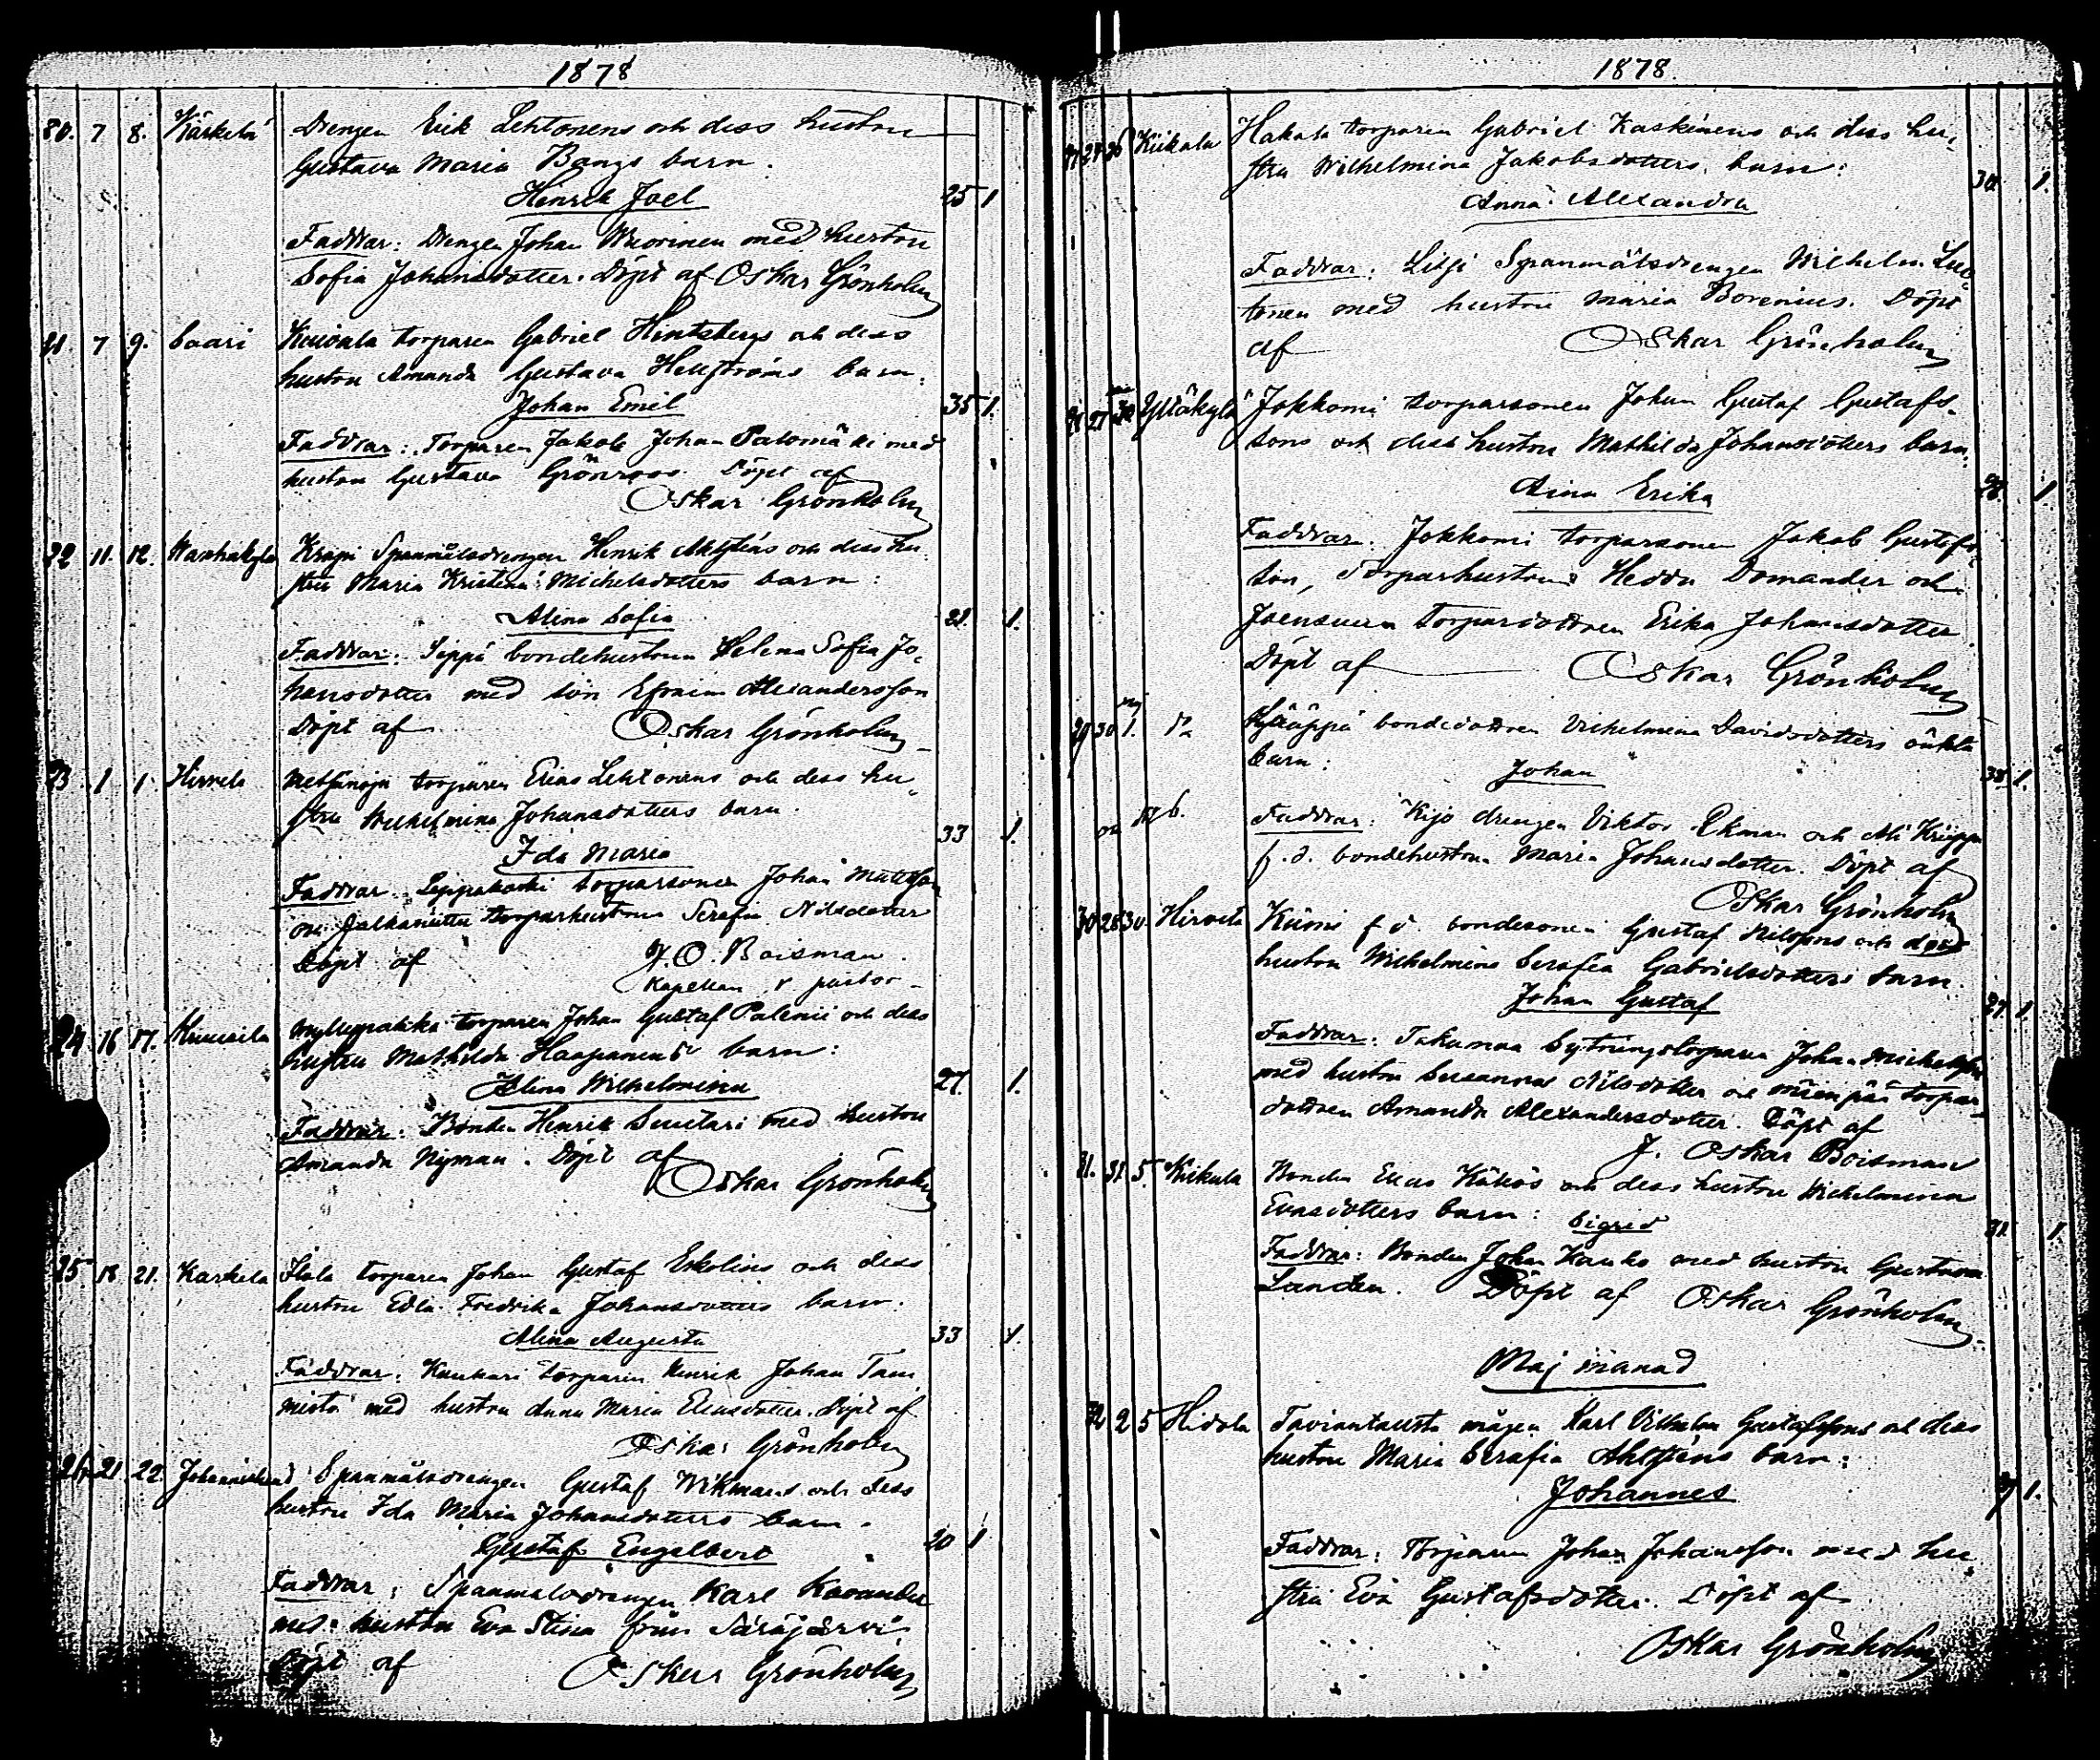 1878
80. 7 8. Kärkelä Drengen Erik Lehtonens och dess hustru
Gustava Maria Bangs barn.
Henrik Joel 25 1
Faddrar: Drengen Johan Wuorinen med hustru
Sofia Johansdotter. Döpt af Oskar Grönholm
21. 7 9. Saari torparen Gabriel Hintsbergs och dess
hustru Amanda Gustava Hellströms barn:
Johan Emil 35 1.
Faddrar: Torparen Jakob Johan Palomäki med
hustru Gustava Grönroos. Döpt af
Oskar Grönholm
22 11. 12. Wanhakylä Krapi Spanmålsdrengen Henrik Ahlsténs och dess hu-
stru Maria Kristina Michelsdotters barn:
Alina Sofia 21. 1.
Faddrar: Seppä bondehustrun Helena Sofia Jo-
hansdotter med son Efraim Alexandersson
Döpt af Oskar Grönholm
23 1 1 Hirvelä torparen Elias Lehtonens och dess hu-
stru Wilhelmina Johansdotters barn.
33 1.
Ida Maria
Faddrar: Leppäkoski torparsonen Johan Mattsson
och torparhustrun Serafia Nilsdotter
Döpt af J. O. Boisman.
Kapellan v pastor
24. 16 17. torparen Johan Gustaf Palenii och dess
hustru Mathilda Haapanens barn:
Alina Wilhelmina 27. 1.
Faddrar: Bonden Henrik med hustru
Amanda Nyman. Döpt af
Oskar Grönholm
25. 18 21. Karkela torparen Johan Gustaf Eskolins och dess
hustru Edla Fredrika Johansdotters barn.
Alina Augusta 33 1.
Faddrar: Kankari torparen Henrik Johan Tam
misto med hustru Anna Maria Eliasdotter. Döpt af
Oskar Grönholm
26. 21 22 Johannislund Spanmålsdrengen Gustaf Wikmans och dess
hustru Ida Maria Johansdotters barn.
Gustaf Engelbert 20 1
Faddrar: Spanmålsdrengen Karl Kavander
med hustru Eva Stina från Säräjärvi
Döpt af Oskar Grönholm
1878.
27 24 26 Kiikala Hakala torparen Gabriel Kaskinens och dess hu-
stru Wilhelmina Jakobsdotters barn:
30 1.
Anna Alexandra
Faddrar: Spanmålsdrengen Wilhelm
tonen med hustru Maria Borenius. Döpt
af Oskar Grönholm
28 27 30 Yltäkylä Jokkomi torparsonen Johan Gustaf Gustafs-
sons och dess hustru Mathilda Johansdotters barn:
Aina Erika 1
Faddrar: Jokkomi torparsonen Jakob Gustafs-
son, Torparhustrun Hedda Domander och
Joensuun torpardottren Erika Johansdotter
Döpt af Oskar Grönholm
29 30 1. bondedottren Vilhelmina Davidsdotters oäkta
barn: Johan 38 1.
oä 6.
Faddrar: Kijo drengen Viktor Ekman och
f. d. bondehustrun Maria Johansdotter. Döpt af
Oskar Grönholm
30 28 30 Hirvelä f d. bondesonen Gustaf Nilssons och dess
hustru Wilhelmina Serafia Gabrielsdotters barn.
Johan Gustaf 27 1.
Faddrar: Takamaa Sytningstorparen Johan Michelsson
med hustru Susanna Nilsdotter och torpar-
dottren Amanda Alexandersdotter. Döpt af
J. Oskar Boisman
31. 31. 5. Kiikala Bonden Elias och dess hustru Wilhelmina
Evasdotters barn: Sigrid 31. 1
Faddrar: Bonden Johan Kauko med hustru Gustava
Landen. Döpt af Oskar Grönholm
Maj månad
32 2 5 Hidola mågen Karl Vilhelm Gustafssons och dess
hustru Maria Serafia Ahlstens barn:
Johannes 1.
Faddrar: Torparen Johan Johansson med hu-
stru Eva Gustafsdotter. Döpt af
Oskar Grönholm